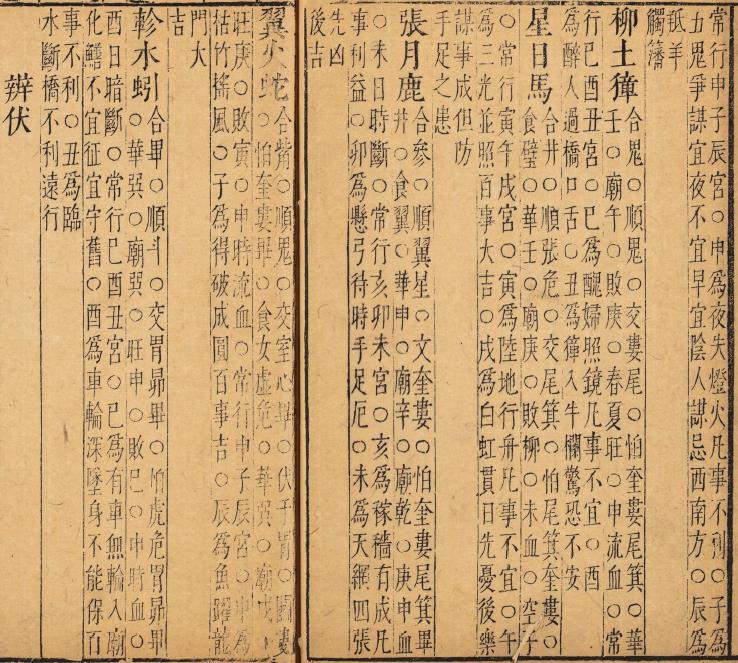 常行申子辰宮○申為夜失燈火凡事不利○子為
五鬼爭謀宜夜不宜早宜陰人謀忌西南方○辰為
羝羊
觸籓
柳土獐合鬼○順鬼○交婁尾○怕奎婁尾箕○華
壬○廟午○敗庚○春夏旺○申流血○常
行巳酉丑宮○巳為醜婦照鏡凡事不宜○酉
為醉人過橋口舌○丑為獐入牛欄驚恐不安
星日馬合井○順張危○交尾箕○怕尾箕奎婁○
食壁○華壬○廟庚○敗柳○未血○空子
○常行寅午戌宮○寅為陸地行舟凡事不宜○午
為三光並照百事大吉○戌為白虹貫日先憂後樂
謀事成但防
手足之患
張月鹿合參○順翼星○文奎婁○怕奎婁尾箕畢
井○食翼○華申○廟辛○廟乾○庚申血
○未日時斷○常行亥卯未宮○亥為稼穡有成凡
事利益○卯為懸弓待時手足厄○未為天網四張
先凶
後吉
翼火蛇合觜○順鬼○交室心畢○伏子胃○鬭婁
○怕奎婁畢○食女虛危○華巽○廟戌○
旺庚○敗寅○申時流血○常行申子辰宮○申為
枯竹搖風○子為得破成圓百事吉○辰為魚躍龍
門大
吉
軫水蚓合畢○順斗○交胃昴畢○怕虎危胃昴畢
○華巽○廟巽○旺申○敗巳○申時血○
酉日暗斷○常行巳酉丑宮○巳為有車無輪入廟
化鱔不宜征宜守舊○酉為車輪深墜身不能保百
事不利○丑為臨
水斷橋不利遠行
辨伏